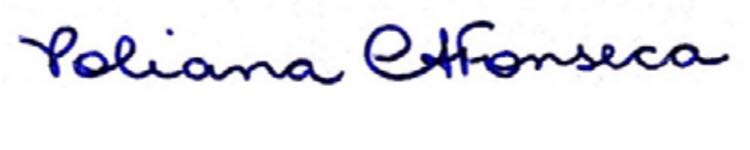 Poliana Fonseca